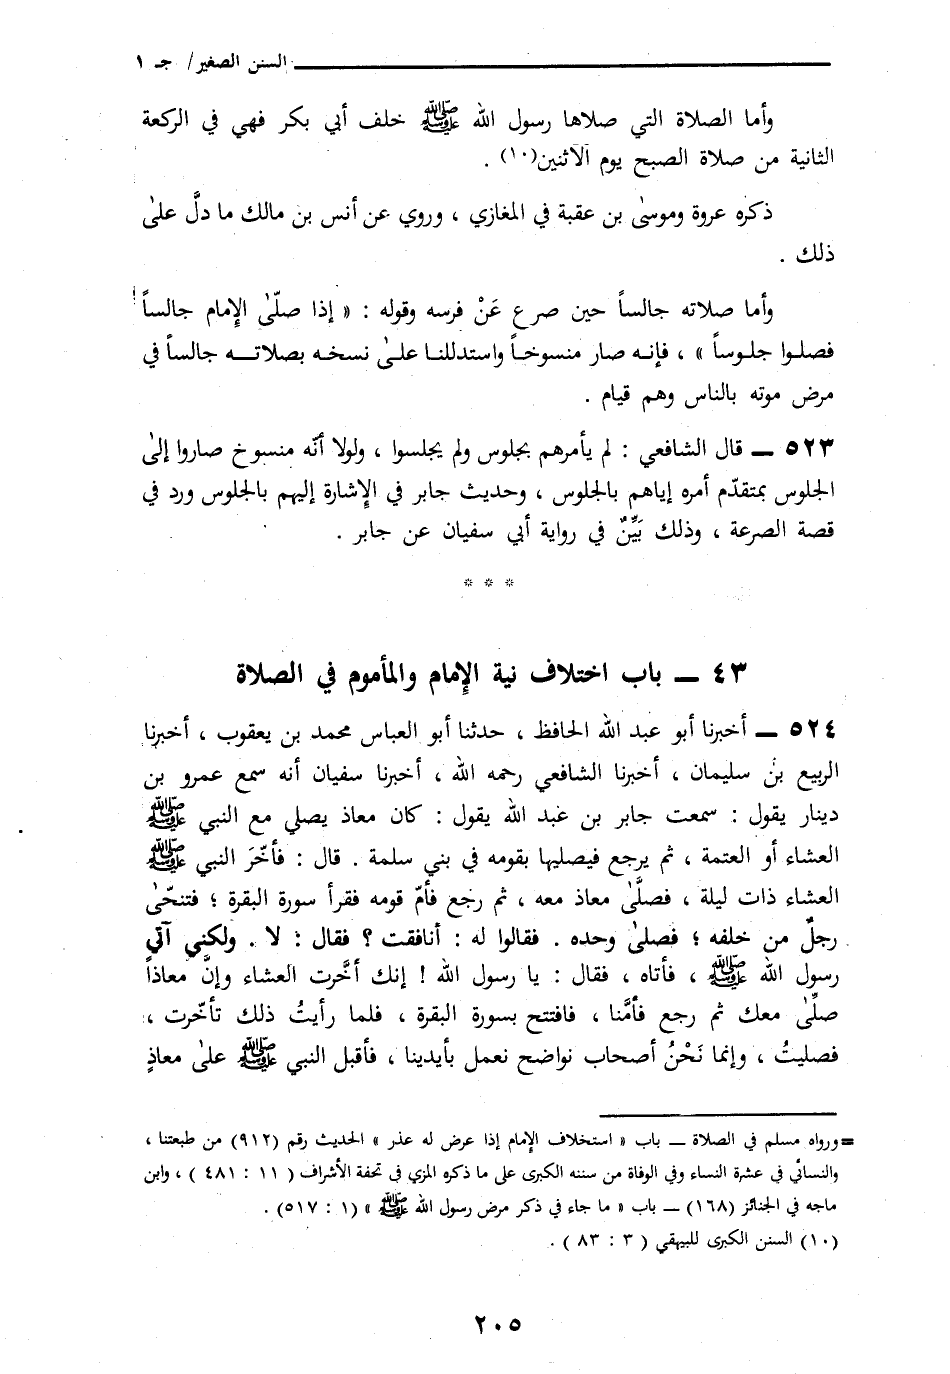 السنن الصغير/ جـ ١
وأما الصلاة التي صلاها رسول الله ﷺ خلف أبي بكر فهي في الركعة
الثانية من صلاة الصبح يوم الآثنين(١٠) .
ذكره عروة وموسىٰ بن عقبة في المغازي ، وروي عن أنس بن مالك ما دلَّ علىٰ
ذلك .
وأما صلاته جالساً حين صرع عَنْ فرسه وقوله : « إذا صلّىٰ الإِمام جالساً
فصلوا جلوساً » ، فإنه صار منسوخاً واستدللنا علىٰ نسخه بصلاته جالساً في
مرض موته بالناس وهم قيام .
٥٢٣ ــ قال الشافعي : لم يأمرهم بجلوس ولم يجلسوا ، ولولا أنّه منسوخ صاروا إلىٰ
الجلوس بمتقدّم أمره إياهم بالجلوس ، وحديث جابر في الإِشارة إليهم بالجلوس ورد في
قصة الصرعة ، وذلك بَيِّنٌ في رواية أبي سفيان عن جابر .
* * *
٤٣ ــ باب اختلاف نية الإِمام والمأموم في الصلاة
٥٢٤ ــ أخبرنا أبو عبد الله الحافظ ، حدثنا أبو العباس محمد بن يعقوب ، أخبرنا
الربيع بن سليمان ، أخبرنا الشافعي رحمه الله ، أخبرنا سفيان أنه سمع عمرو بن
دينار يقول : سمعت جابر بن عبد الله يقول : كان معاذ يصلي مع النبي ﷺ
العشاء أو العتمة ، ثم يرجع فيصليها بقومه في بني سلمة . قال : فأخّرَ النبي ﷺ
العشاء ذات ليلة ، فصلَّىٰ معاذ معه ، ثم رجع فأمّ قومه فقرأ سورة البقرة ؛ فتنحّىٰ
رجلٌ من خلفه ؛ فصلىٰ وحده . فقالوا له : أنافقت ؟ فقال : لا . ولكني آتي
رسول الله ﷺ ، فأتاه ، فقال : يا رسول الله ! إنك أخَّرت العشاء وإنَّ معاذاً
صلّىٰ معك ثم رجع فأمَّنا ، فافتتح بسورة البقرة ، فلما رأيتُ ذلك تأخّرت ،
فصليتُ ، وإنما نَحْنُ أصحاب نواضح نعمل بأيدينا ، فأقبل النبي ﷺ علىٰ معاذٍ
= ورواه مسلم في الصلاة ــ باب « استخلاف الإِمام إذا عرض له عذر » الحديث رقم (٩١٢) من طبعتنا ،
والنسائي في عشرة النساء وفي الوفاة من سننه الكبرى على ما ذكره المزي في تحفة الأشراف ( ١١ : ٤٨١ ) ، وابن
ماجه في الجنائز (١٦٨) ــ باب « ما جاء في ذكر مرض رسول الله ﷺ » (١ : ٥١٧) .
(١٠) السنن الكبرى للبيهقي ( ٣ : ٨٣ ) .
٢٠٥